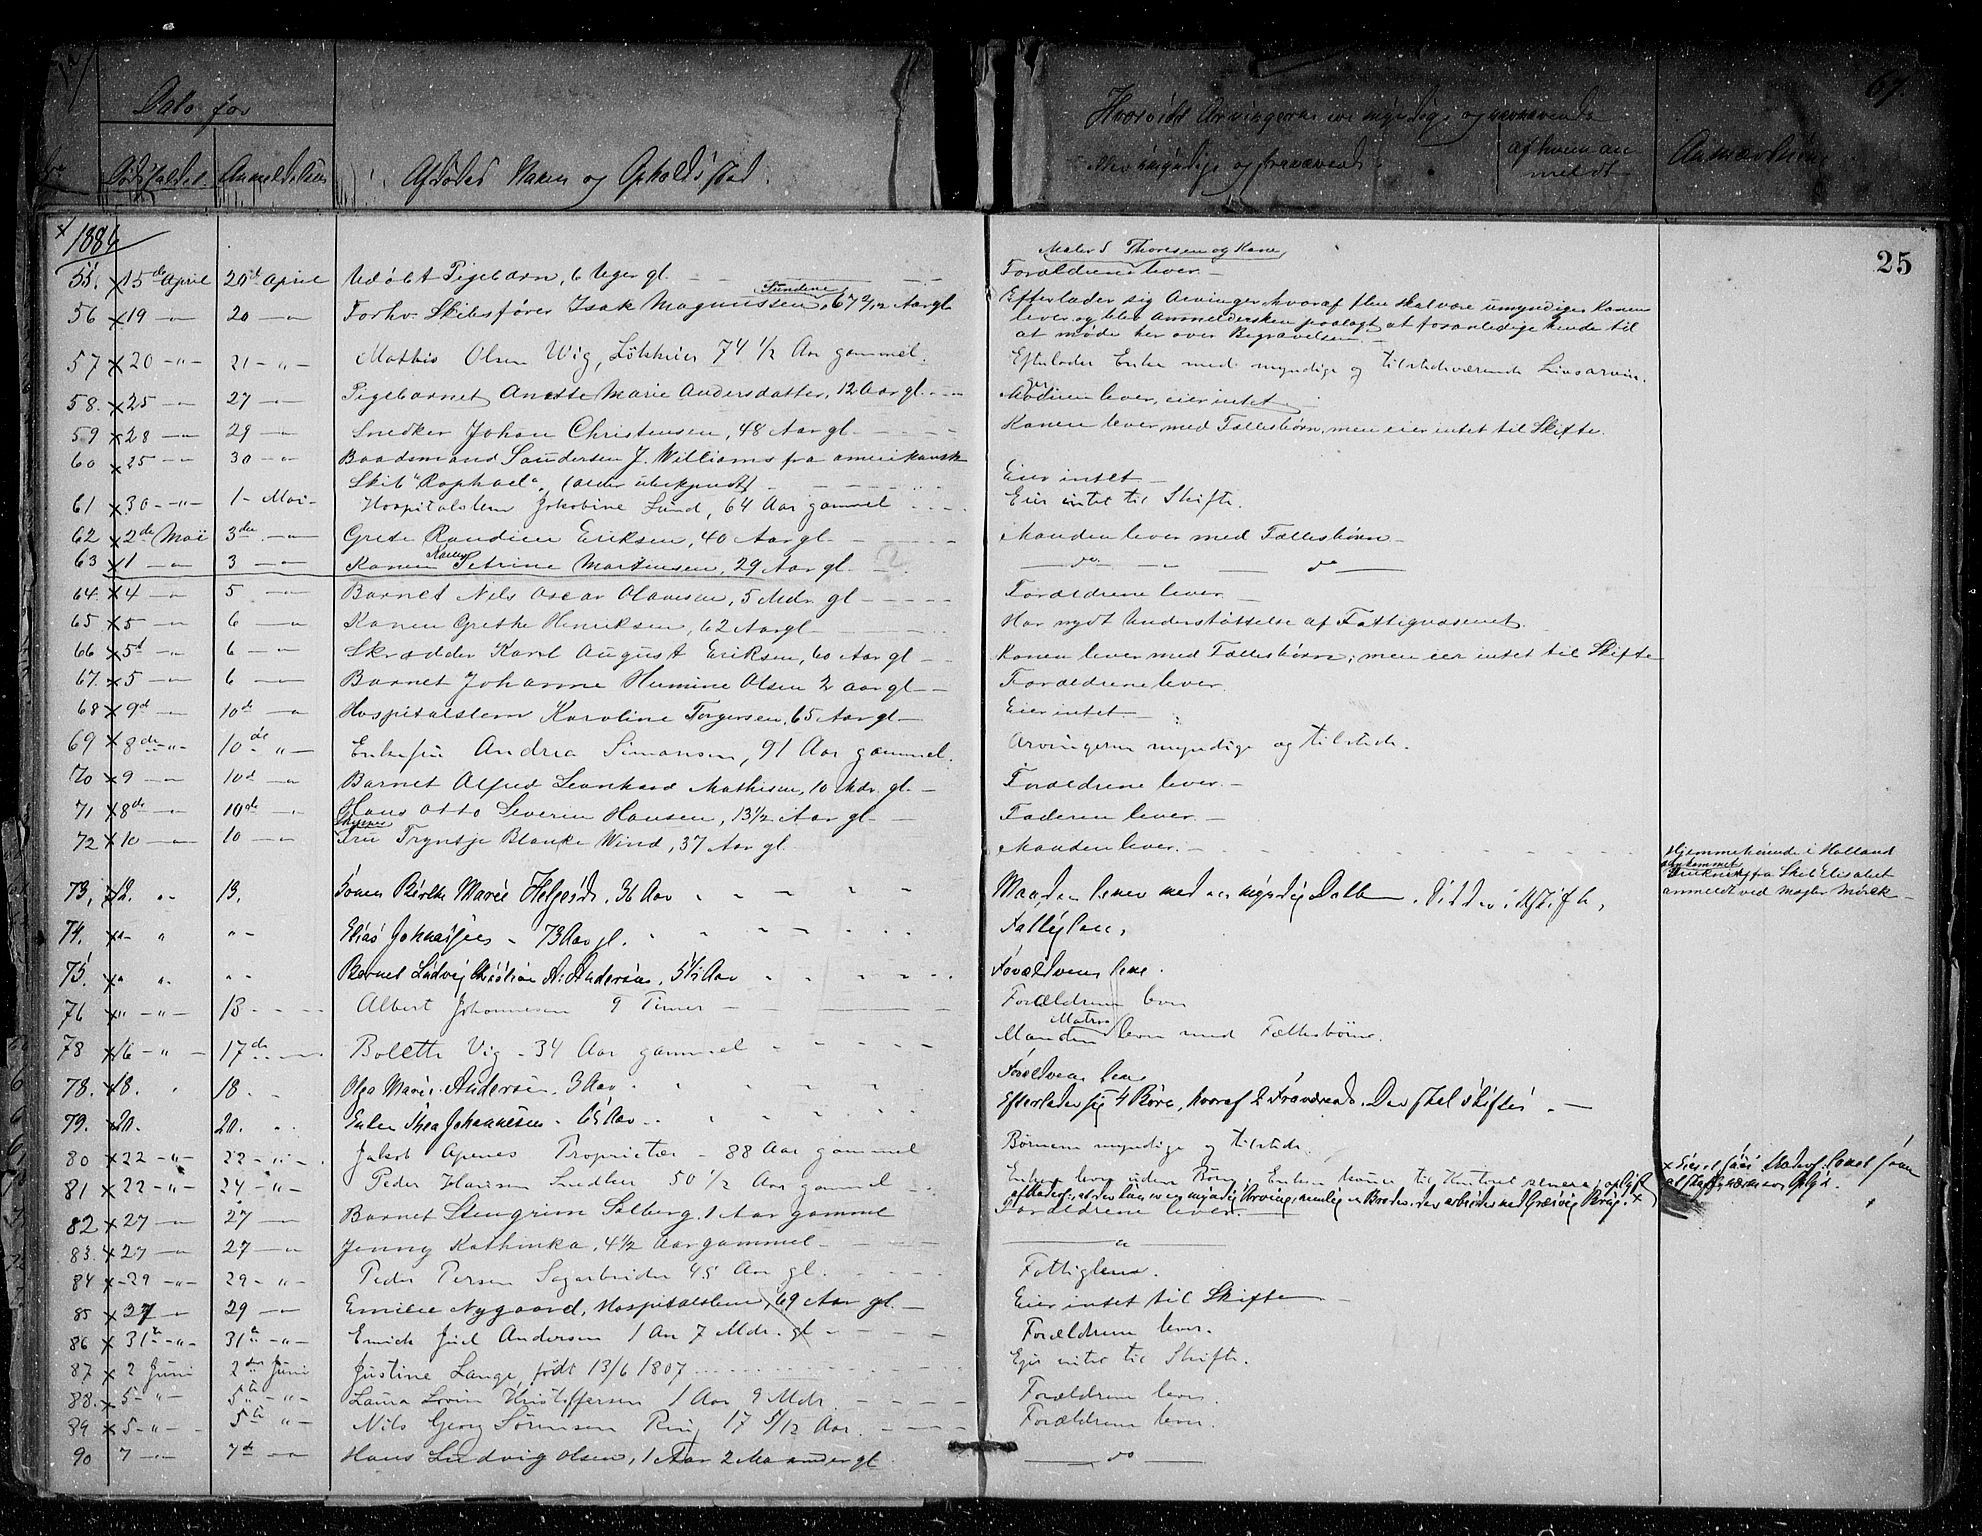 67.
Dato for
Dødsfaldet. Anmeldelsen
Afdødes Navn og Opholdssted.
Hvorvidt Arvingerne ere myndige og nærværende
eller umyndige og fraværende
af hvem an
meldt
25
1884
55. 15de April 20de April Udøbt Pigebarn, 6 Uger gl. Maler S Thoresen og Kone Forældrene lever.
56 19 20 Forhv. Skibsfører Isak Magnussen, 67 Aar gl Efterlader sig Arvinger, hvoraf flere skal være umyndige, Konen
lever og blev Anmeldersken paalagt at foranledige hende til
at møde her over Begravelsen.
57 20 21 Mathis Olsen Wig, 74 1/2 Aar gammel. Efterlader Enke med myndige og tilstedeværende Livsarvin-
ger
58. 25 27 Pigebarnet Anette Marie Andersdatter, 12 Aar gl. Moderen lever, eier intet
59 28 29 Snedker Johan Christensen, 48 Aar gl Konen lever med Fællesbørn, men eier intet til Skifte.
60 25 30 Baadsmand Saudersen J. Williams fra amerikansk
Skib "Raphael", (alder ubekjendt) Eier intet
61 30 1 Mai Hospitalslem Jakobine Lund, 64 Aar gammel Eier intet til Skifte.
62 2de Mai 3die Grete Randine Eriksen, 40 Aar gl. Manden lever med Fællesbørn
63 1 3 Konen Petrine Mortensen, 29 Aar gl. do do
64. 4 5 Barnet Nils Oscar Olausen, 5 Mdr. gl Forældrene lever
65 5 6 Konen Grethe Henriksen, 62 Aar gl Har nydt Understøttelse af Fattigvæsenet.
66 5d 6 Skrædder Karl August Eriksen, 60 Aar gl Konen lever med Fællesbørn, men eier intet til Skifte
67. 5 6 Barnet Johanne Hermine Olsen 2 aar gl Forældrene lever.
68 9d 10de Hospitalslem Karoline Torgersen, 65 Aar gl Eier intet.
69 8de 10de Enkefru Andrea Simonsen, 91 Aar gammel. Arvingerne myndige og tilstede.
70 9 10d Barnet Alfred Leonhard Mathisen, 10 Mdr. gl. Forældrene lever.
71 8de 10de Hans Otto Severin Hansen, 13 1/2 Aar gl Faderen lever.
72 10 10 Fru Tryntje Blanke Wind, 37 Aar gl Manden lever. Hjemmehørende i Holland
fra Skib Elisabet
anmeldt ved Mægler Mørck
73, 12. 13. Konen Birthe Marie Helgesd. 36 Aar Manden lever med en myndig Datter.
74. Elias Johnassen 73 Aar gl. Fattiglem.
75. Barnet Ludvig Kristian A. Andersen, 5 1/2 Aar Forældrene leve.
76 13 Albert Johannesen 9 Timer Forældrene lever
78 16 17de Bolette Vig 34 Aar gammel Matros Manden lever med Fællesbørn.
78. 18. 18. Olga Marie Andersen 3 Aar Forældrene leve
79. 20. 20. Enken Thea Johannesen 65 Aar Efterlader sig 4 Børn, hvoraf 2 Fraværende. Der skal skiftes.
80 22 22 Jakob Apenes Proprietær 88 Aar gammel Børnene myndige og tilstede.
81 22 24 Peder Hansen Snedker 50 1/2 Aar gammel Enken lever uden Børn.
82 27 27 Barnet Stengrim Solberg. 1 Aar gammel Forældrene lever.
83. 27 27 Jenny Kathinka, 4 1/2 Aar gammel
84 29 29 Peder Persen Sagarbeider 45 Aar gl. Fattiglem.
85 27 29 Emilie Nygaard, Hospitalslem, 69 Aar gl. Eier intet til Skifte
86 31te 31te Emil Juel Andersen 1 Aar 7 Mdr. gl Forældrene lever.
87 2 Juni 2den Juni Justine Lange, født 13/6 1807 Ejer intet til Skifte.
88. 5 5te Laura Lovise Kristoffersen 1 Aar 9 Mdr. Forældrene lever
89 5 5te Nils Georg Sørensen Ring 17 5/12 Aar. Forældrene lever.
90 7 7de Hans Ludvig Olsen, 1 Aar 2 Maaneder gl. do